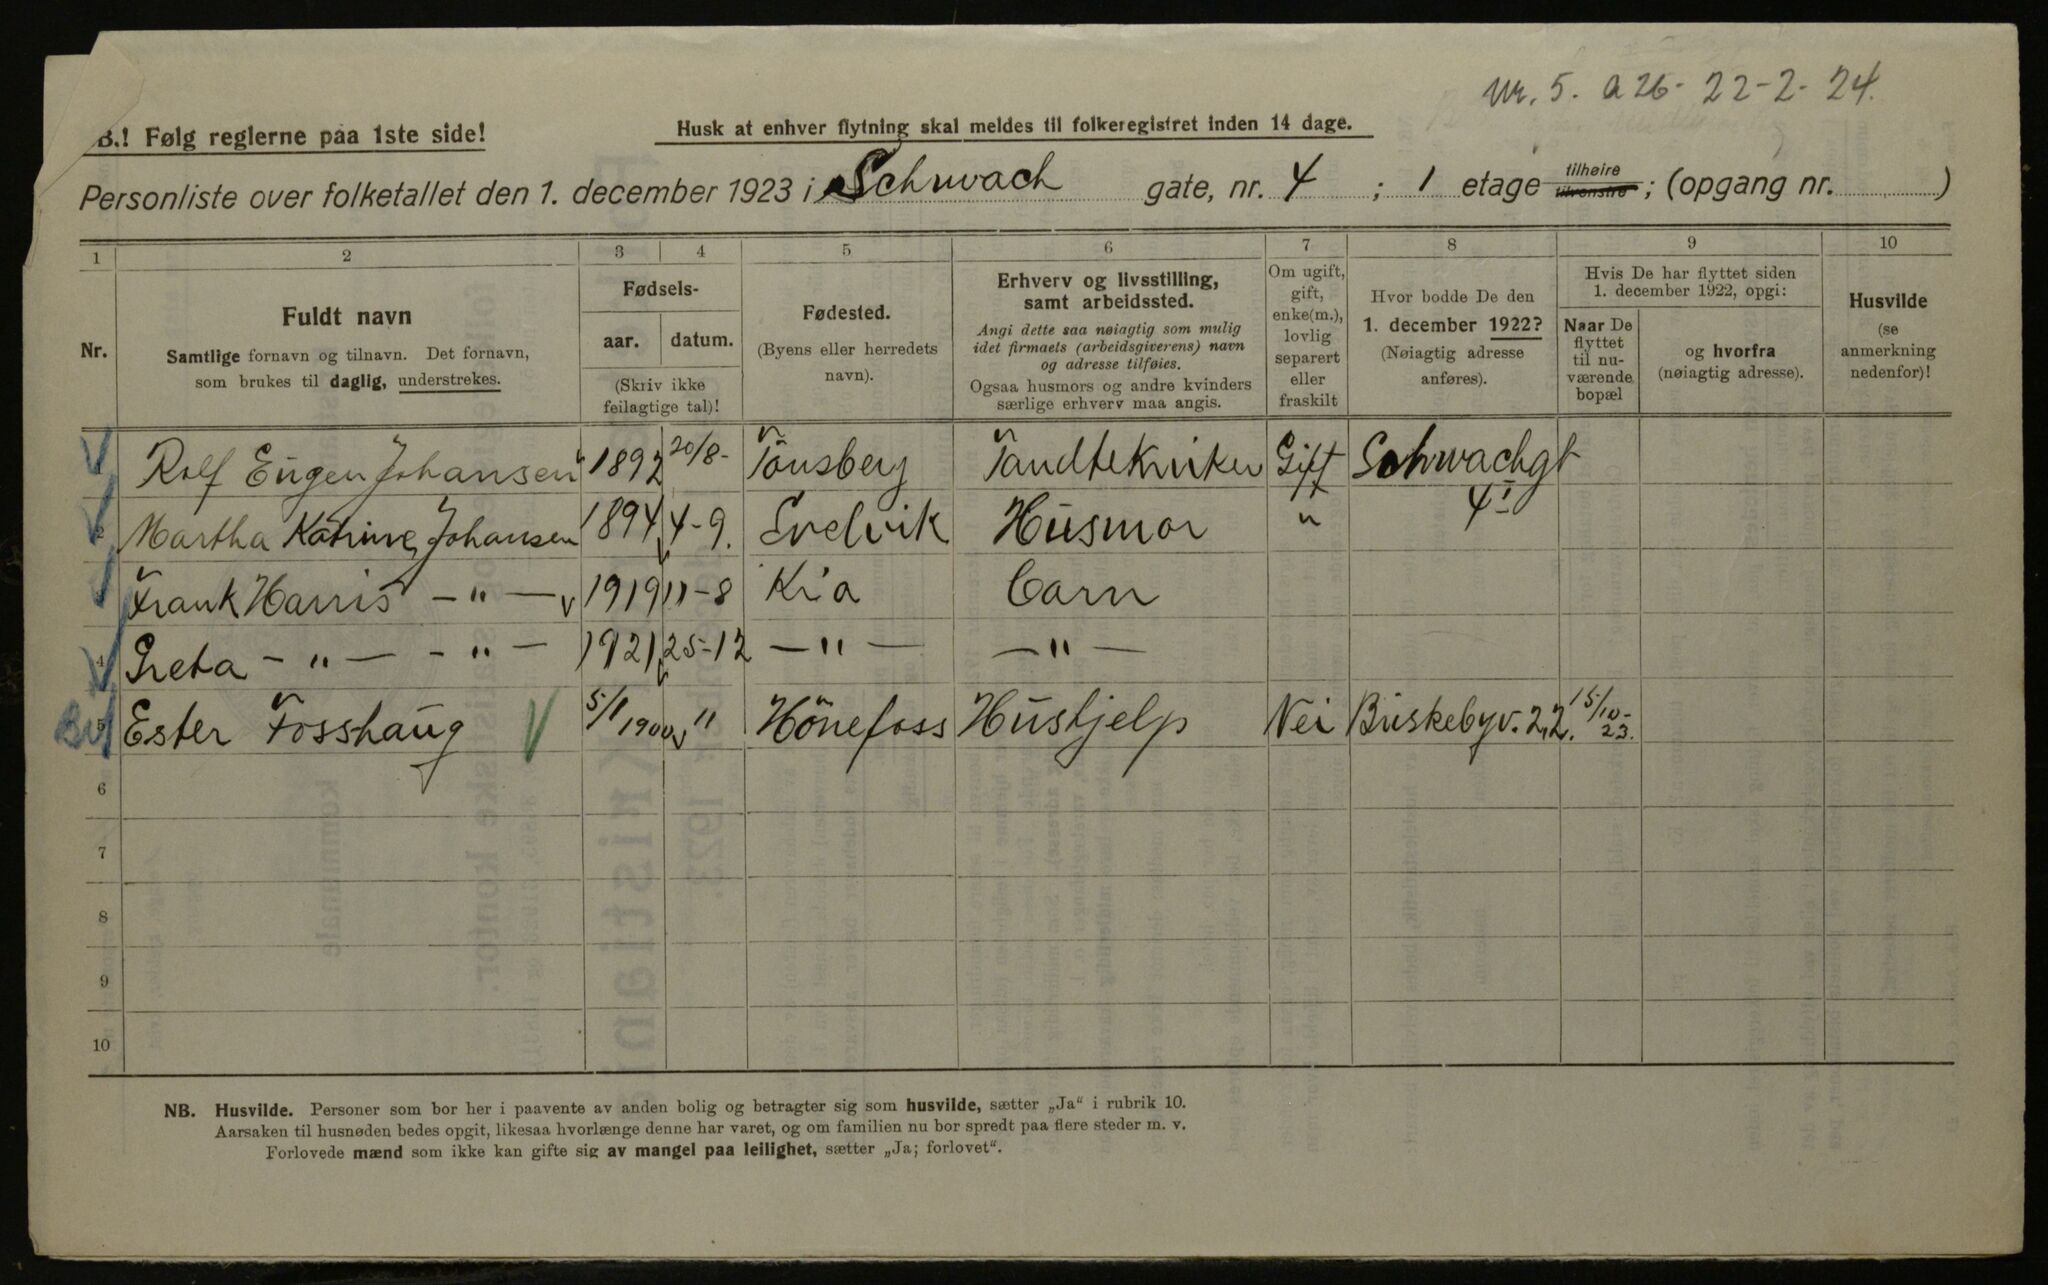 Nr. 5. a 26- 22-2-24.
B.! Følg reglerne paa 1ste side!
Husk at enhver flytning skal meldes til folkeregistret inden 14 dage.
Personliste over folketallet den 1. december 1923 i Schwach gate, nr. 4 ; 1 etage tilhøire tilvenstre ; (opgang nr. )
1 2 3 4 5 6 7 8 9 10
Nr.
Fuldt navn
Samtlige fornavn og tilnavn. Det fornavn,
som brukes til daglig, understrekes.
Fødsels-
aar. datum.
(Skriv ikke
feilagtige tal)!
Fødested.
(Byens eller herredets
navn).
Erhverv og livsstilling,
samt arbeidssted.
Angi dette saa nøiagtig som mulig
idet firmaets (arbeidsgiverens) navn
og adresse tilføies.
Ogsaa husmors og andre kvinders
særlige erhverv maa angis.
Om ugift,
gift,
enke(m.),
lovlig
separert
eller
fraskilt
Hvor bodde De den
1. december 1922?
(Nøiagtig adresse
anføres).
Hvis De har flyttet siden
1. december 1922, opgi:
Naar De
flyttet
til nu-
værende
bopæl
og hvorfra
(nøiagtig adresse).
Husvilde
(se
anmerkning
nedenfor)!
Rolf Eugen Johansen 1892 20/8- Tönsberg Tandtekniker Gift Schwachgt
2 Martha Katrine Johansen 1894 4-9. Svelvik Husmor " 4 I
Frank Harris -"- 1919 11-8 Kria Barn
4 Greta -"- -"- 1921 25-12 -"- -"-
5 Ester Fosshaug 5/1 1900 " Hönefoss Hushjelp Nei Briskebyv. 22. 15/10-23.
6
7
8
9
10
NB. Husvilde. Personer som bor her i paavente av anden bolig og betragter sig som husvilde, sætter „Ja" i rubrik 10.
Aarsaken til husnøden bedes opgit, likesaa hvorlænge denne har varet, og om familien nu bor spredt paa flere steder m. v.
Forlovede mænd som ikke kan gifte sig av mangel paa leilighet, sætter „Ja; forlovet".